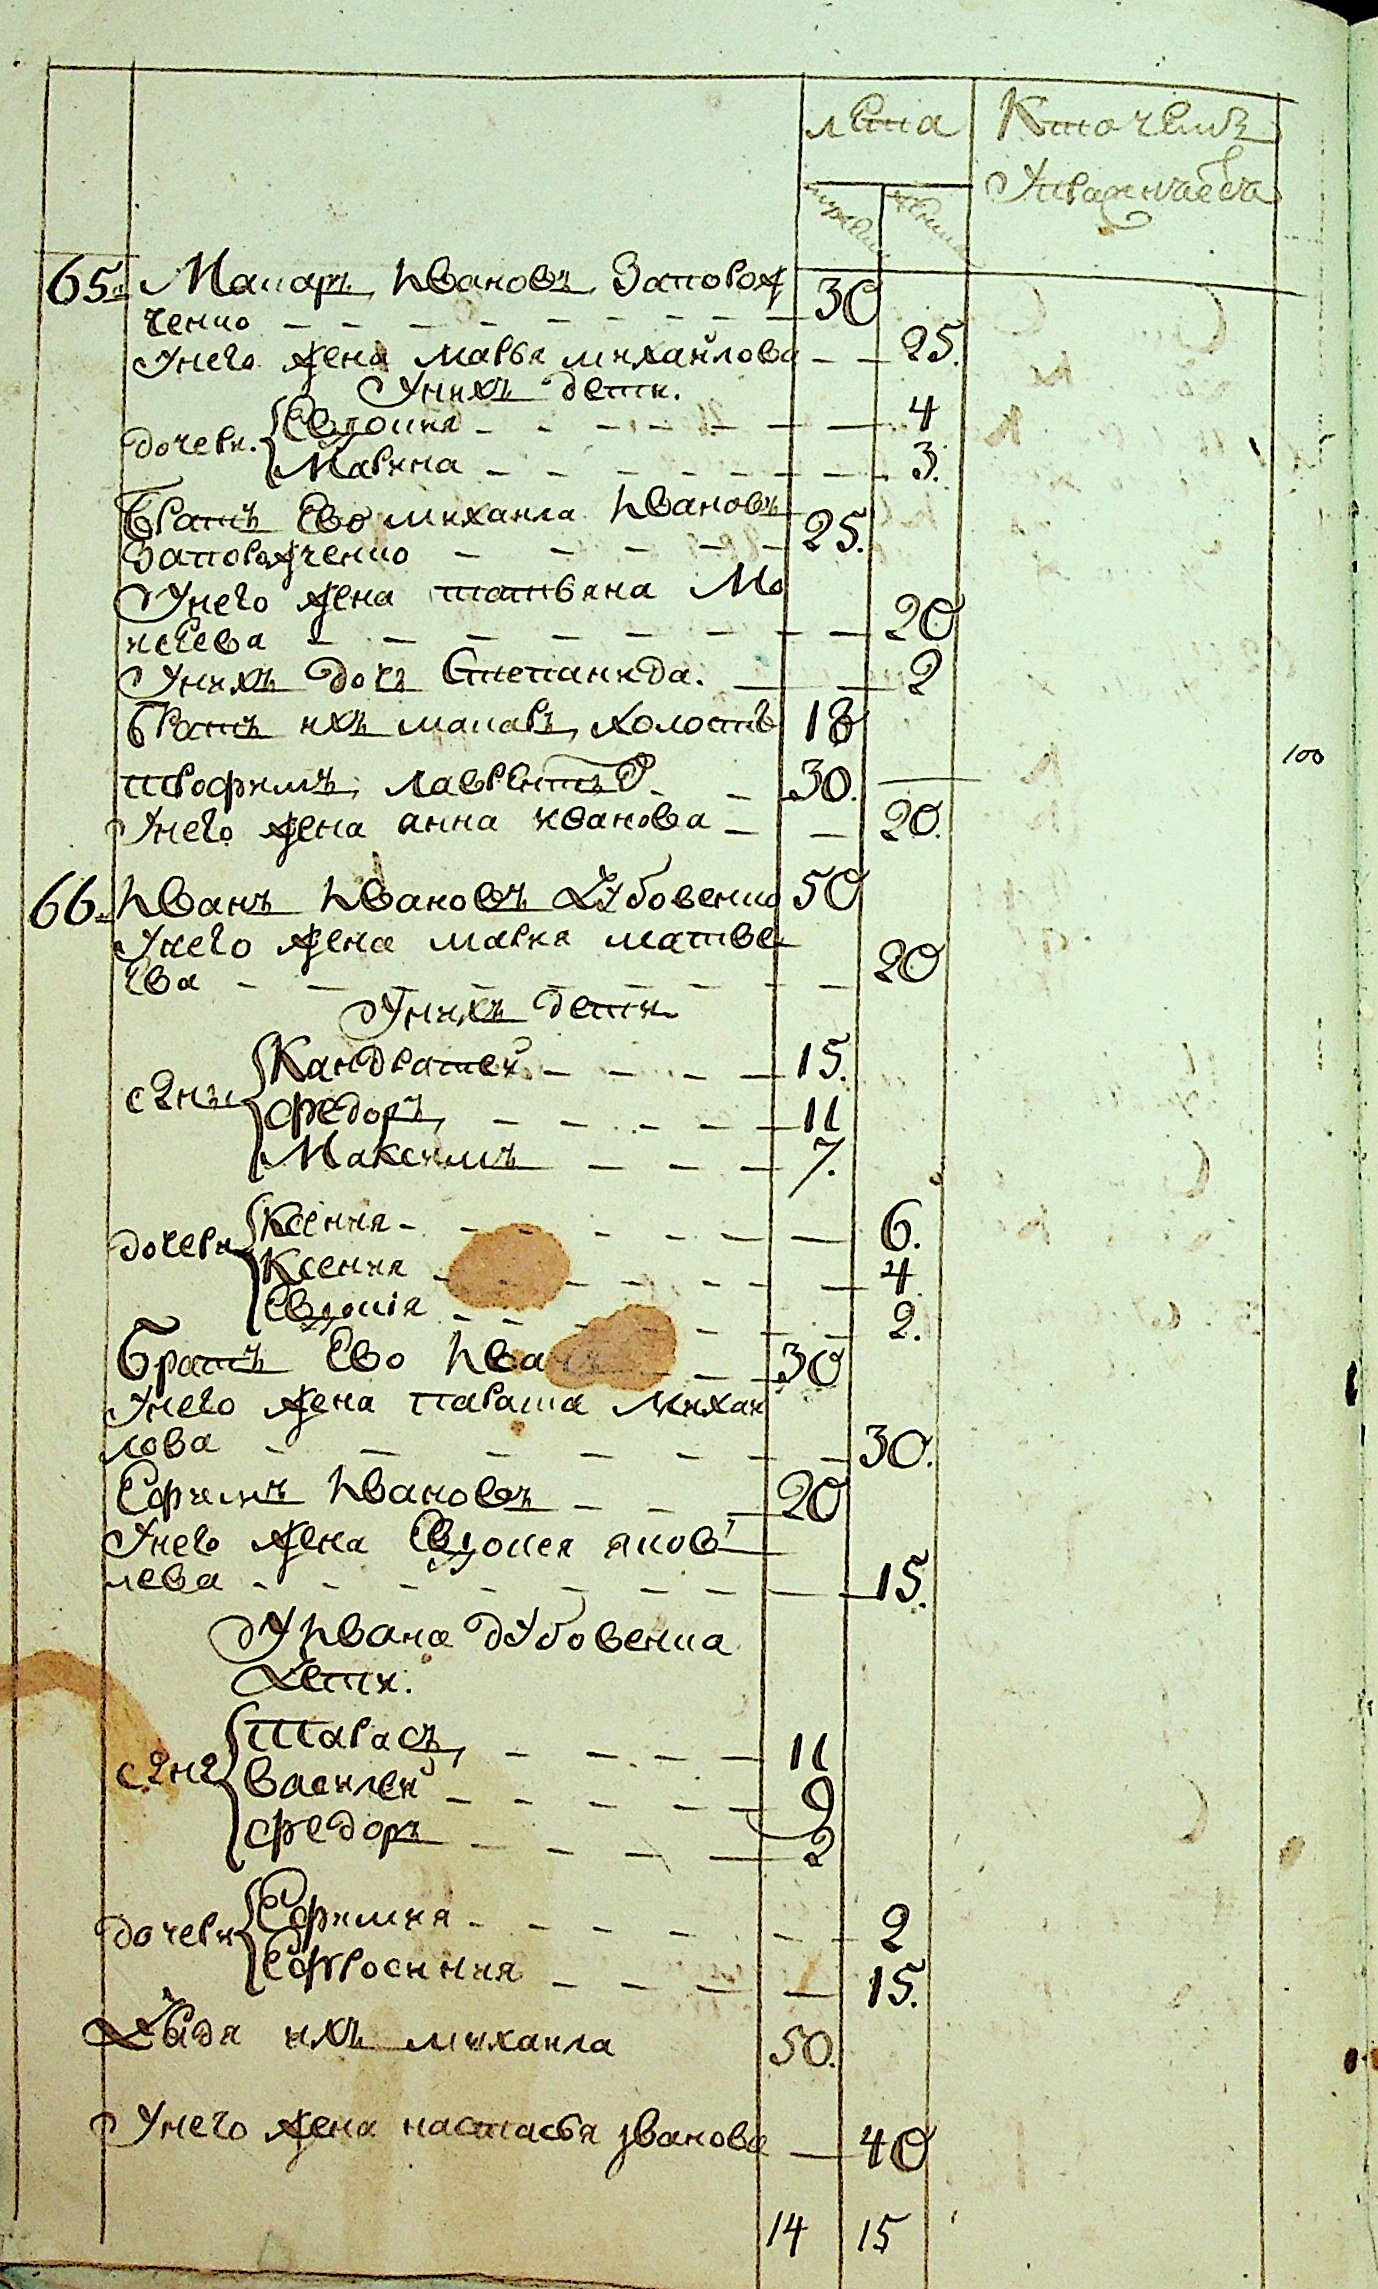 лета
Кто чемъ
Упражняетъся
мужеска
женска
65. Макаръ Ивановъ Запорож 30
ченко
У него жена марья михайлова 25.
У нихъ дети.
дочери. Евдокия 4
Марина 3.
Братъ Ево михаила Ивановъ
Запорожченко 25.
У него жена татьяна Мо
исеева 20
У нихъ доч Степанида. 2
Братъ ихъ макаръ, холостъ 18
100
трофимъ, лаврентьев. 30.
У него жена анна иванова 20.
66. Иванъ Ивановъ Дубовенко 50
У него жена мария матве
ева 20
У нихъ дети
сыны Кандратей 15.
федоръ 11
Максимъ 7.
дочери Ксения 6.
Ксения 4
Евдокія 2.
Братъ Ево Иван 30
У него жена параша Михаи
лова 30.
Ефимъ Ивановъ 20
У него жена Евдокея яков
лева 15.
У Ивана дубовенка
Дети.
сыны Тарасъ, 11
Василей 9
федоръ 2
дочери Ефимия 2
Ефросиния 15.
Дядя ихъ михаила 50.
У него жена настасья иванова 40
14 15